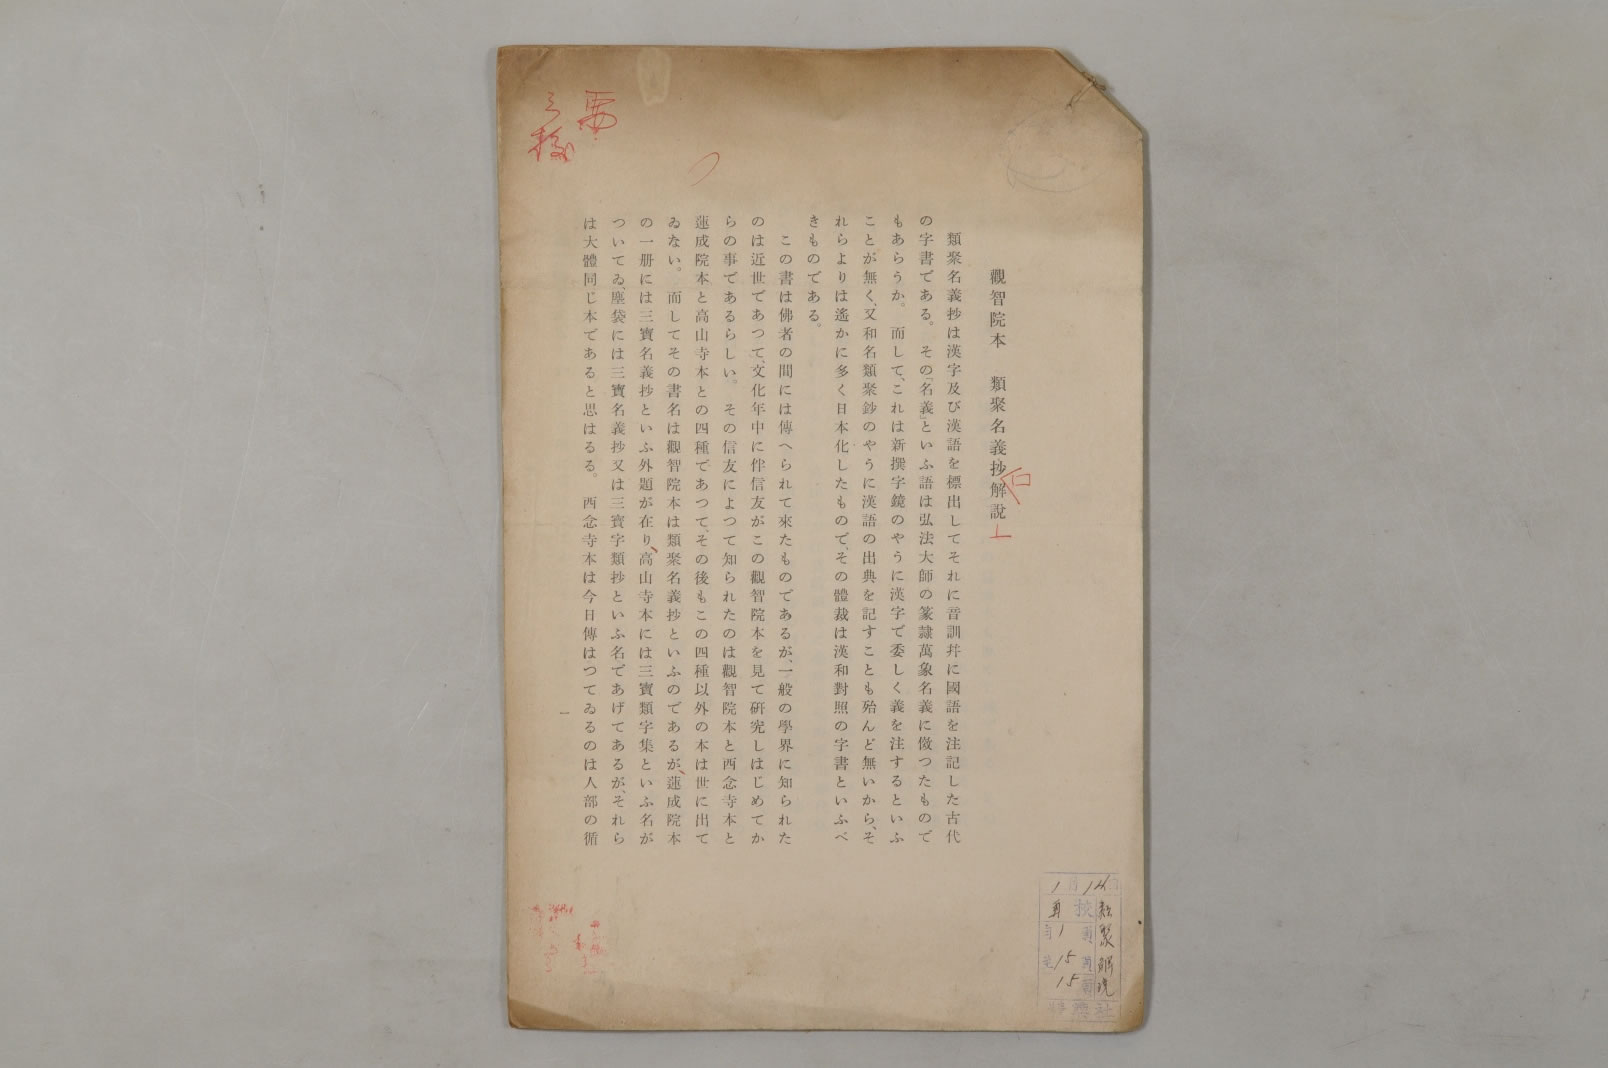 觀智院本　類聚名義抄解說
類聚名義抄は漢字及び漢語を標出してそれに音訓幷に國語を注記した古代
の字書である。その「名義」といふ語は弘法大師の篆隷萬象名義に倣つたもので
もあらうか。而して、これは新撰字鏡のやうに漢字で委しく義を注するといふ
ことが無く、又和名類聚鈔のやうに漢語の出典を記すことも殆んど無いから、そ
れらよりは遙かに多く日本化したもので、その體裁は漢和對照の字書といふべ
きものである。
この書は佛者の間には傳へられて來たものであるが、一般の學界に知られた
のは近世であつて、文化年中に伴信友がこの觀智院本を見て硏究しはじめてか
らの事であるらしい。その信友によつて知られたのは觀智院本と西念寺本と
蓮成院本と高山寺本との四種であつて、その後もこの四種以外の本は世に出て
ゐない。而してその書名は觀智院本は類聚名義抄といふのであるが、蓮成院本
の一册には三寶名義抄といふ外題が在り、高山寺本には三寶類字集といふ名が
ついてゐ、塵袋には三寶名義抄又は三寶字類抄といふ名であげてあるが、それら
は大體同じ本であると思はるる。西念寺本は今日傳はつてゐるのは人部の循
一
要
三校
1月12日
類聚解說
校
1
15
15